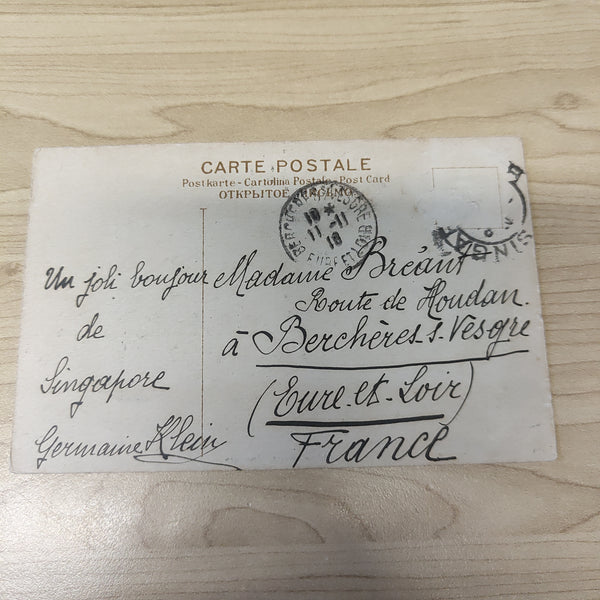 CARTE POSTALE
Postkarte - Cartolina Postale - Post Card
ОТКРЫТОЕ
BERCHERES VESGRE
10 *
11 - 11
EURE ET LOIR
Un joli bonjour
de
Singapore
Germaine Klein
Madame Bréant
Route de Houdan.
à Berchères-s-Vesgre
(Eure-et-Loir)
France